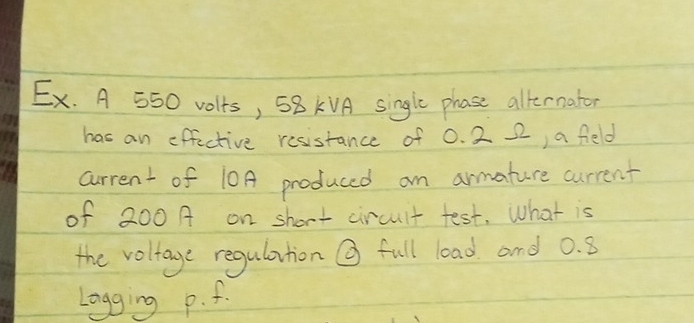 Ex. A 550 volts, 58 kVA single phase alternator
has an effective resistance of 0.2 Ω, a field
current of 10A produced an armature current
of 200 A on short circuit test. What is
the voltage regulation @ full load and 0.8
Lagging p.f.